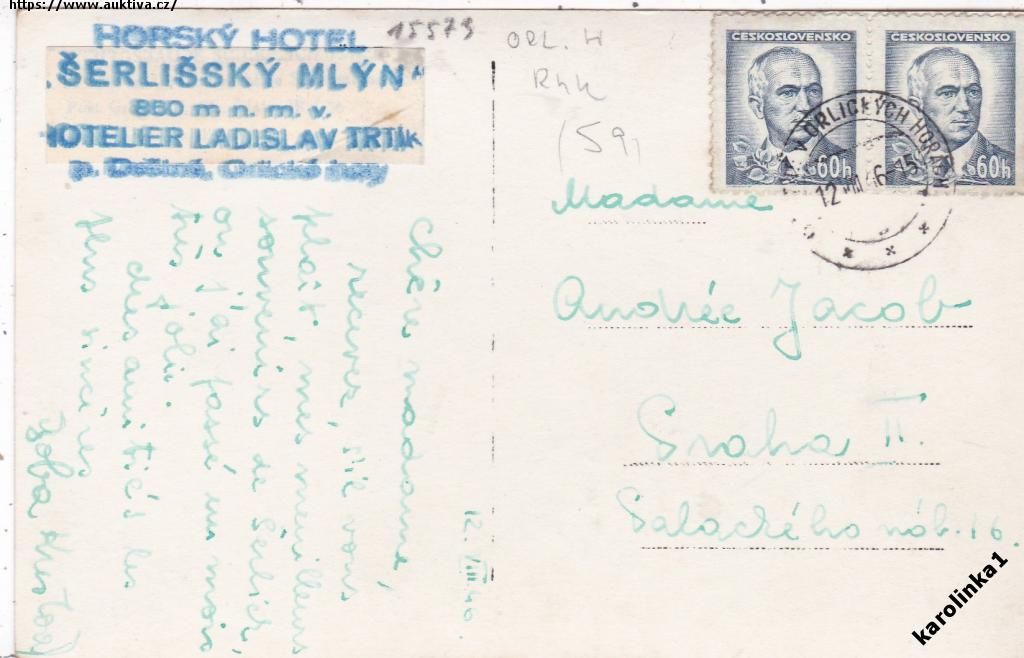 https://www.auktiva.cz/
HORSKÝ HOTEL
„ŠERLIŠSKÝ MLÝN“
860 m n. m. v.
HOTELIER LADISLAV TRTÍK
p. Deštné, Orlické hory
15579
ORL. H
(59,
ČESKOSLOVENSKO
60h
ČESKOSLOVENSKO
60h
V ORLICKÝCH HORÁCH
12 VIII 46-15
Madame
Andrée Jacob
Praha II.
Palackého náb. 16.
12. VIII. 46.
Chère madame,
recevez, s'il vous
plaît, mes meilleurs
souvenirs de Šerlich,
où j'ai passé un mois
très joli.
des amitiés les
plus sincères
karolinka1